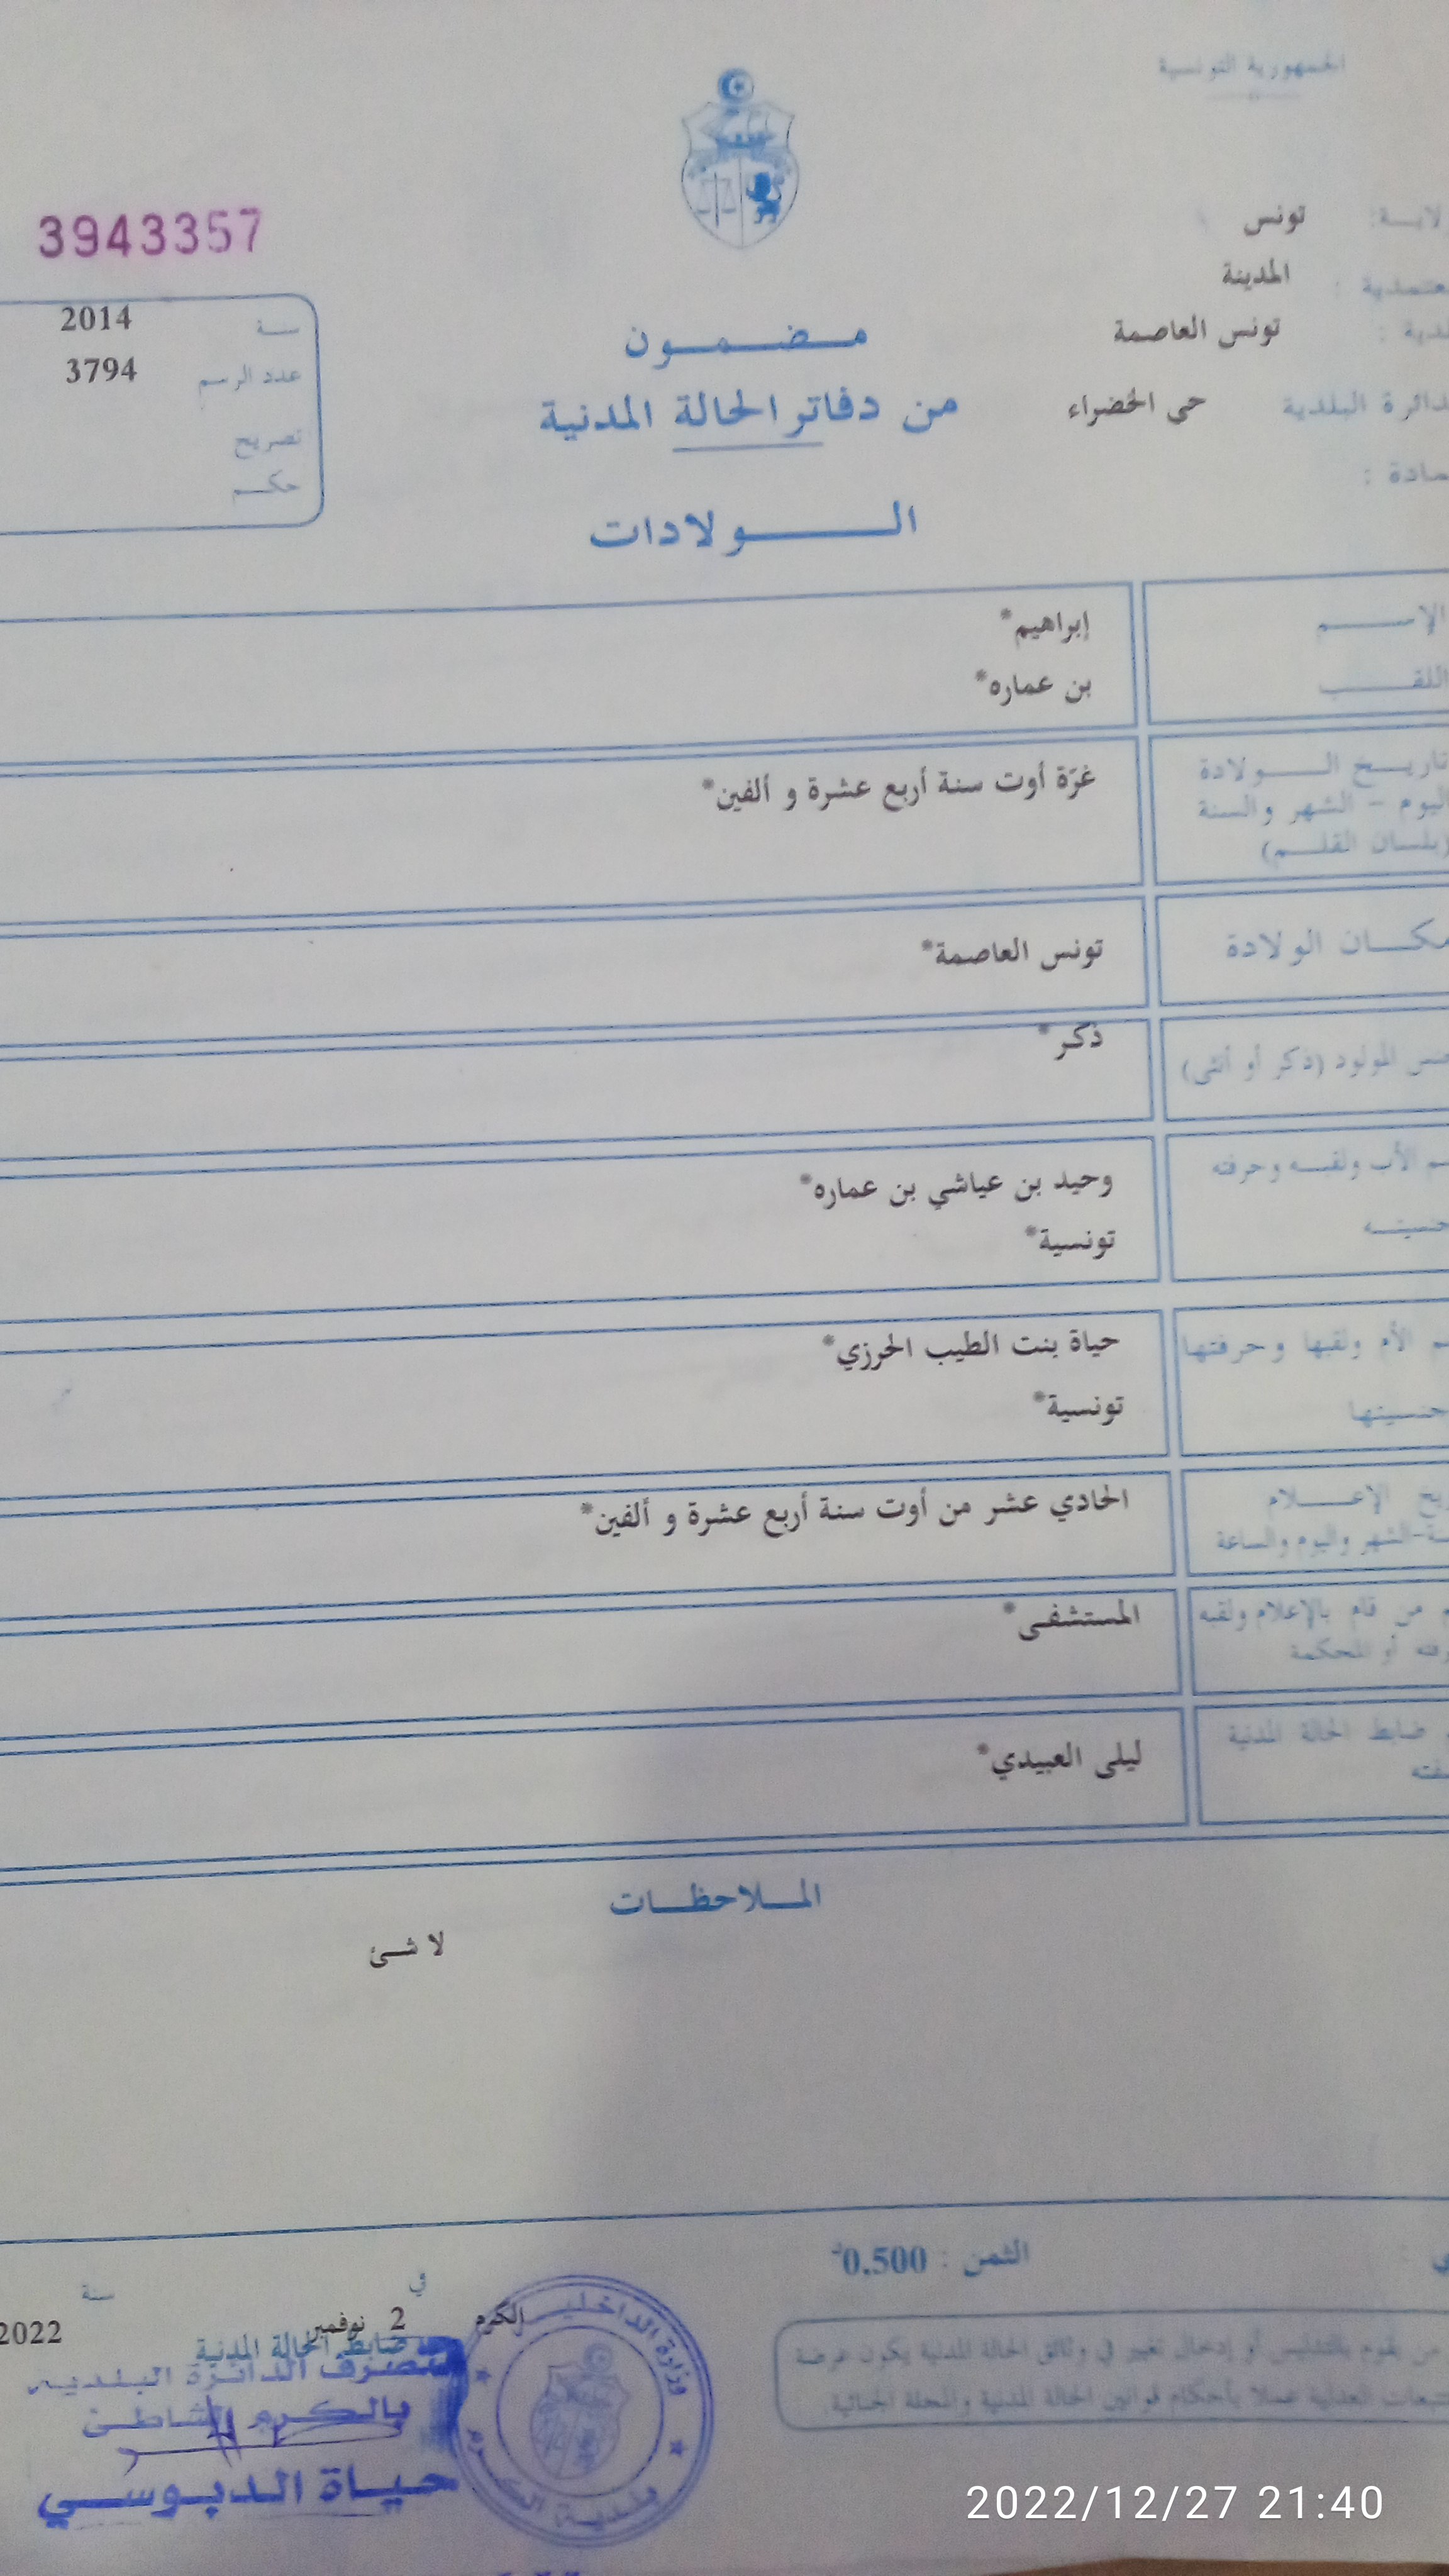 الجمهورية التونسية
تونس
المدينة
تونس العاصمة
حي الخضراء
3943357
سنة 2014
عدد الرسم 3794
تصريح
حكم
مضمون
من دفاتر الحالة المدنية
الولادات
الإسم إبراهيم*
اللقب بن عماره*
تاريخ الولادة غرّة أوت سنة أربع عشرة و ألفين*
اليوم - الشهر والسنة
(بلسان القلم)
مكان الولادة تونس العاصمة*
المولود (ذكر أو أنثى) ذكر*
الأب ولقبه وحرفته وحيد بن عياشي بن عماره*
تونسية*
الأم ولقبها وحرفتها حياة بنت الطيب الحرزي*
تونسية*
الإعلام الحادي عشر من أوت سنة أربع عشرة و ألفين*
الشهر واليوم والساعة
من قام بالإعلام ولقبه المستشفى*
أو المحكمة
ضابط الحالة المدنية ليلى العبيدي*
الملاحظات
لا شئ
الثمن : 0.500د
في سنة
الكرم 2 نوفمبر 2022
ضابط الحالة المدنية
متصرف الدائرة البلدية
بالكرم الشاطئ
حياة الدبوسي
وزارة الداخلية
بلدية الكرم
من يقوم بالتدليس أو إدخال تغيير في وثائق الحالة المدنية يكون عرضة
العدلية عملا بأحكام قوانين الحالة المدنية والمجلة الجنائية
2022/12/27 21:40